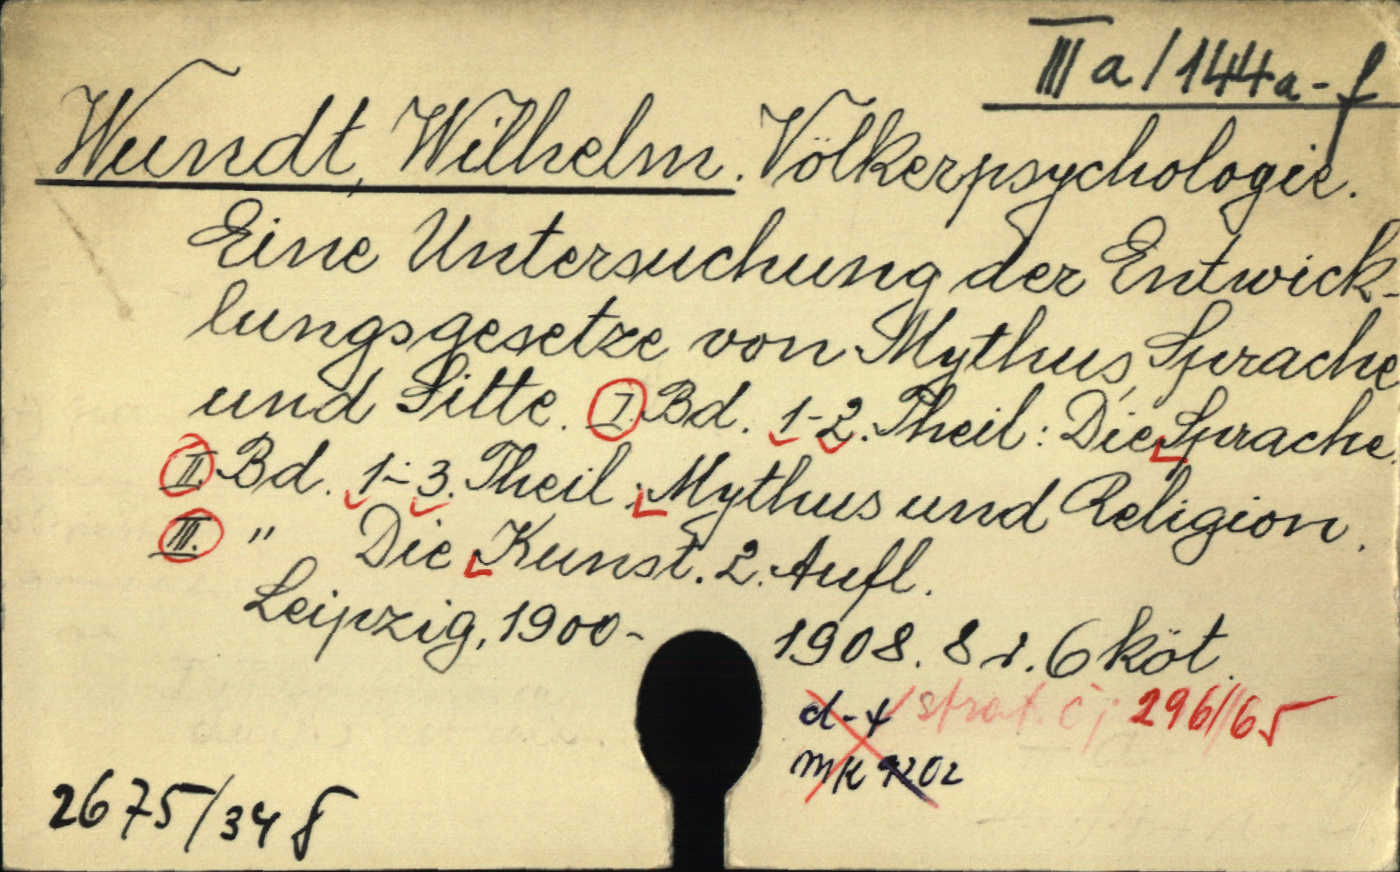 III a/144a-f
Wundt, Wilhelm. Völkerpsychologie.
Eine Untersuchung der Entwick-
lungsgesetze von Mythus, Sprache
und Sitte. I. Bd. 1-2. Theil: Die Sprache.
II. Bd. 1-3. Theil: Mythus und Religion.
III. " Die Kunst. 2. Aufl.
Leipzig, 1900- 1908. 8 r. 6 köt.
d-f strat. čj 296/65
mk 9202
2675/34